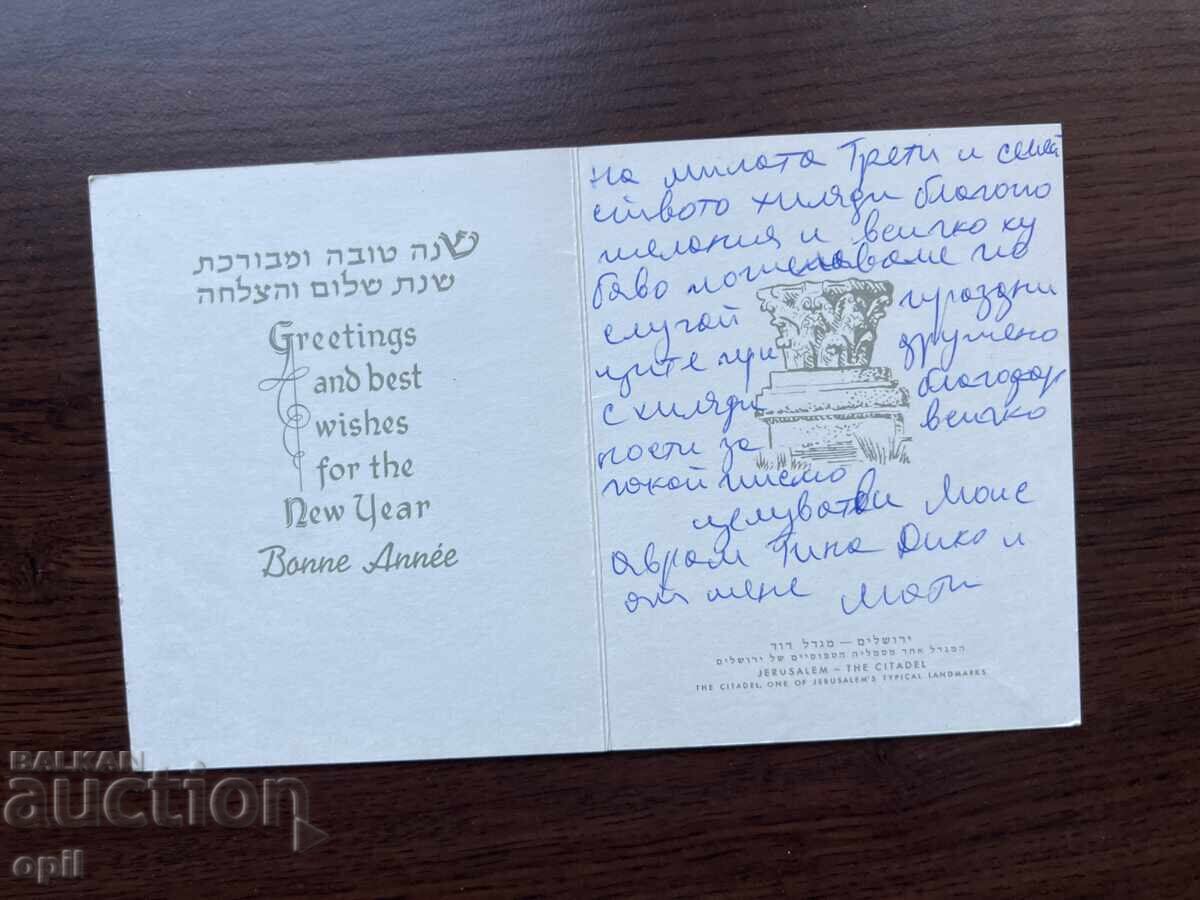 שנה טובה ומבורכת
שנת שלום והצלחה
Greetings
and best
wishes
for the
New Year
Bonne Année
на милата Грети и семей
ството хиляди благопо
желания и всичко ху
баво пожелаваме по
случай праздни
ците при дружено
с хиляди благодар
ности за всичко
писмо
целуват ви Моис
Аврам Тина Дико и
от мене Мати
ירושלים — מגדל דוד
המגדל אחד מסמליה הטפוסיים של ירושלים
JERUSALEM – THE CITADEL
THE CITADEL, ONE OF JERUSALEM'S TYPICAL LANDMARKS
BALKAN
auction
opil